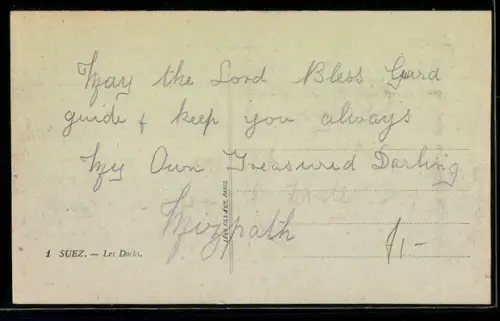 May the Lord Bless Gard
guide & keep you always
My Own Treasured Darling
Mizpath
1 SUEZ. — Les Docks.
LEVY FILS & Cie, PARIS
1/-